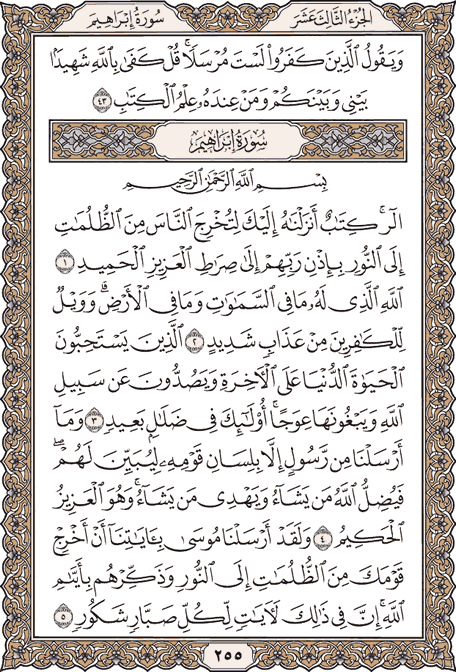 سُورَةُ إِبْرَاهِيمَ الجُزْءُ الثَّالِثَ عَشَرَ
وَيَقُولُ ٱلَّذِينَ كَفَرُوا۟ لَسْتَ مُرْسَلًا ۚ قُلْ كَفَىٰ بِٱللَّهِ شَهِيدًۢا
بَيْنِى وَبَيْنَكُمْ وَمَنْ عِندَهُۥ عِلْمُ ٱلْكِتَٰبِ ٤٣
سُورَةُ إِبْرَاهِيمَ
بِسْمِ ٱللَّهِ ٱلرَّحْمَٰنِ ٱلرَّحِيمِ
الٓر ۚ كِتَٰبٌ أَنزَلْنَٰهُ إِلَيْكَ لِتُخْرِجَ ٱلنَّاسَ مِنَ ٱلظُّلُمَٰتِ
إِلَى ٱلنُّورِ بِإِذْنِ رَبِّهِمْ إِلَىٰ صِرَٰطِ ٱلْعَزِيزِ ٱلْحَمِيدِ ١
ٱللَّهِ ٱلَّذِى لَهُۥ مَا فِى ٱلسَّمَٰوَٰتِ وَمَا فِى ٱلْأَرْضِ ۗ وَوَيْلٌ
لِّلْكَٰفِرِينَ مِنْ عَذَابٍ شَدِيدٍ ٢ ٱلَّذِينَ يَسْتَحِبُّونَ
ٱلْحَيَوٰةَ ٱلدُّنْيَا عَلَى ٱلْءَاخِرَةِ وَيَصُدُّونَ عَن سَبِيلِ
ٱللَّهِ وَيَبْغُونَهَا عِوَجًا ۚ أُو۟لَٰٓئِكَ فِى ضَلَٰلٍۭ بَعِيدٍ ٣ وَمَآ
أَرْسَلْنَا مِن رَّسُولٍ إِلَّا بِلِسَانِ قَوْمِهِۦ لِيُبَيِّنَ لَهُمْ ۖ
فَيُضِلُّ ٱللَّهُ مَن يَشَآءُ وَيَهْدِى مَن يَشَآءُ ۚ وَهُوَ ٱلْعَزِيزُ
ٱلْحَكِيمُ ٤ وَلَقَدْ أَرْسَلْنَا مُوسَىٰ بِـَٔايَٰتِنَآ أَنْ أَخْرِجْ
قَوْمَكَ مِنَ ٱلظُّلُمَٰتِ إِلَى ٱلنُّورِ وَذَكِّرْهُم بِأَيَّىٰمِ
ٱللَّهِ ۚ إِنَّ فِى ذَٰلِكَ لَءَايَٰتٍ لِّكُلِّ صَبَّارٍ شَكُورٍ ٥
٢٥٥